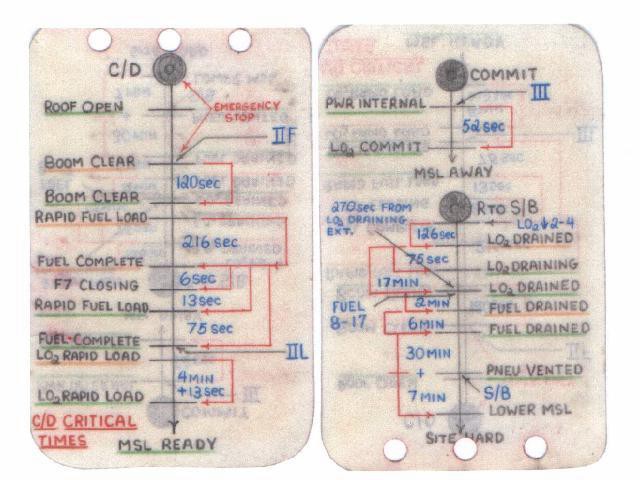 C/D
ROOF OPEN
EMERGENCY
STOP
IIF
BOOM CLEAR
120sec
BOOM CLEAR
RAPID FUEL LOAD
216 sec
FUEL COMPLETE
6sec
F7 CLOSING
13sec
RAPID FUEL LOAD
75 sec
FUEL COMPLETE
IIL
LO2 RAPID LOAD
4 MIN
+13sec
LO2 RAPID LOAD
C/D CRITICAL
TIMES
MSL READY
COMMIT
III
PWR INTERNAL
52sec
LO2 COMMIT
MSL AWAY
270sec FROM
LO2 DRAINING
EXT.
R TO S/B
LO2↓2-4
126sec
LO2 DRAINED
75sec
LO2 DRAINING
17MIN
LO2 DRAINED
FUEL
8-17
2MIN
FUEL DRAINED
6MIN
FUEL DRAINED
30MIN
+
7 MIN
PNEU VENTED
S/B
LOWER MSL
SITE HARD